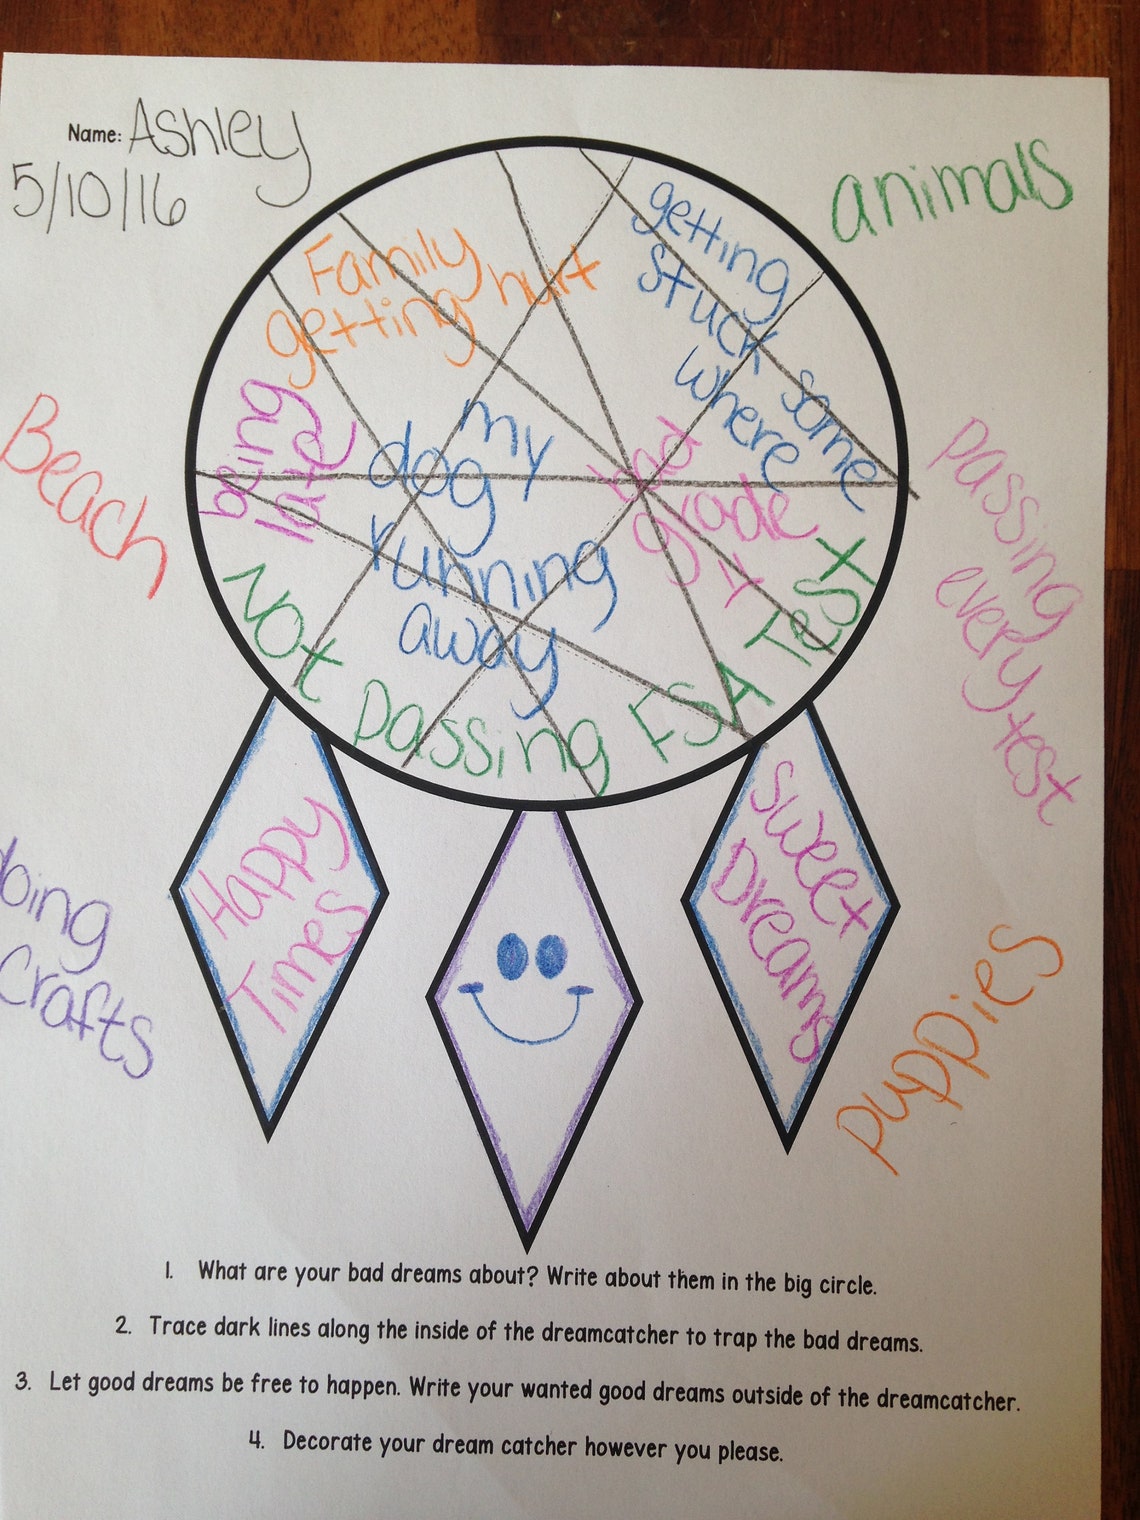 Name: Ashley
5/10/16
animals
Family
getting hurt
getting
stuck some
where
being
late
my
dog
running
away
bad
grade
Not passing FSA Test
Beach
passing
every test
doing
crafts
Happy
Times
Sweet
Dreams
puppies
1. What are your bad dreams about? Write about them in the big circle.
2. Trace dark lines along the inside of the dreamcatcher to trap the bad dreams.
3. Let good dreams be free to happen. Write your wanted good dreams outside of the dreamcatcher.
4. Decorate your dream catcher however you please.